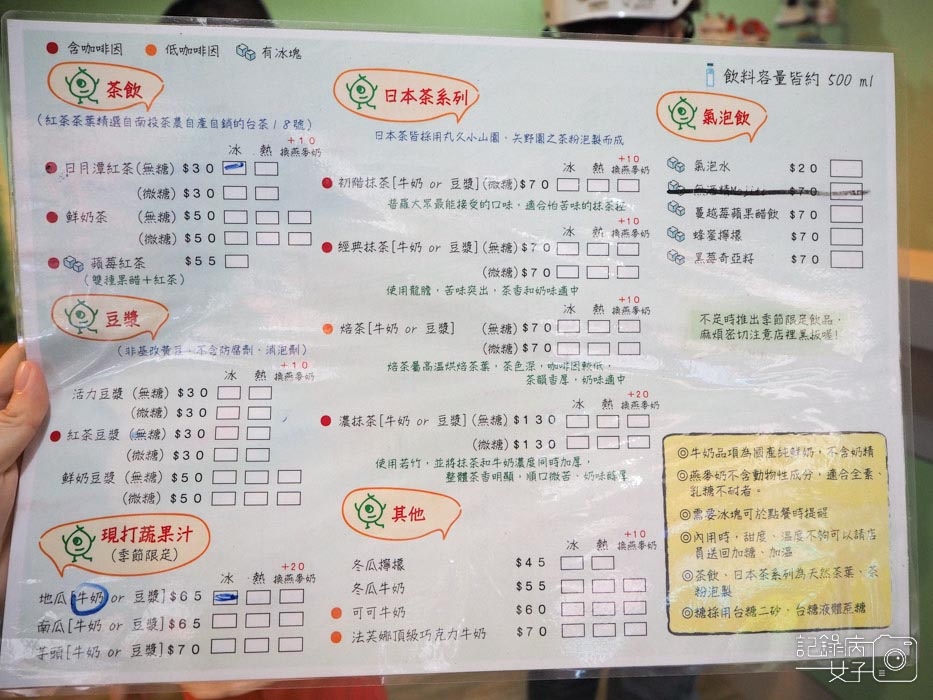 含咖啡因 低咖啡因 有冰塊
飲料容量皆約 500 ml
茶飲
(紅茶茶葉精選自南投茶農自產自銷的台茶18號)
冰 熱 +10 換燕麥奶
日月潭紅茶(無糖) $30
(微糖) $30
鮮奶茶 (無糖) $50
(微糖) $50
蘋莓紅茶 $55
(雙種果醋+紅茶)
豆漿
(非基改黃豆,不含防腐劑、消泡劑)
冰 熱 +10 換燕麥奶
活力豆漿 (無糖) $30
(微糖) $30
紅茶豆漿 (無糖) $30
(微糖) $30
鮮奶豆漿 (無糖) $50
(微糖) $50
現打蔬果汁
(季節限定)
冰 熱 +20 換燕麥奶
地瓜[牛奶 or 豆漿] $65
南瓜[牛奶 or 豆漿] $65
芋頭[牛奶 or 豆漿] $70
日本茶系列
日本茶皆採用丸久小山園、矢野園之茶粉泡製而成
冰 熱 +10 換燕麥奶
初階抹茶[牛奶 or 豆漿] (微糖) $70
普羅大眾最能接受的口味,適合怕苦味的抹茶控
冰 熱 +10 換燕麥奶
經典抹茶[牛奶 or 豆漿] (無糖) $70
(微糖) $70
使用龍膽,苦味突出,茶香和奶味適中
冰 熱 +10 換燕麥奶
焙茶[牛奶 or 豆漿] (無糖) $70
(微糖) $70
焙茶屬高溫烘焙茶葉,茶色深,咖啡因較低,
茶韻香厚,奶味適中
冰 熱 +20 換燕麥奶
濃抹茶[牛奶 or 豆漿] (無糖) $130
(微糖) $130
使用若竹,並將抹茶和牛奶濃度同時加厚,
整體茶香明顯,順口微苦、奶味醇厚
其他
冰 熱 +10 換燕麥奶
冬瓜檸檬 $45
冬瓜牛奶 $55
可可牛奶 $60
法芙娜頂級巧克力牛奶 $70
氣泡飲
氣泡水 $20
Mojito $70
蔓越莓蘋果醋飲 $70
蜂蜜檸檬 $70
黑莓奇亞籽 $70
不定時推出季節限定飲品,
麻煩密切注意店裡黑板喔!
◎牛奶品項為國產純鮮奶,不含奶精
◎燕麥奶不含動物性成分,適合全素
乳糖不耐者。
◎需要冰塊可於點餐時提醒
◎內用時,甜度、溫度不夠可以請店
員送回加糖、加溫
◎茶飲、日本茶系列為天然茶葉、茶
粉泡製
◎糖採用台糖二砂、台糖液體蔗糖
記錄病
女子